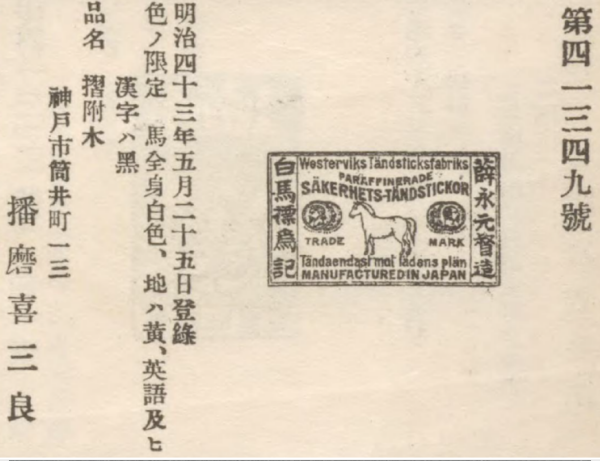 第四一三四九號
薛永元督造
Westerviks Tändsticksfabriks
PARAFFINERADE
SÄKERHETS-TÄNDSTICKOR
TRADE MARK
Tändaendast mot ladans plän
MANUFACTURED IN JAPAN
白馬標爲記
明治四十三年五月二十五日登錄
色ノ限定 馬全身白色、地ハ黃、英語及ヒ
漢字ハ黑
品名 摺附木
神戶市筒井町一三
播磨喜三良